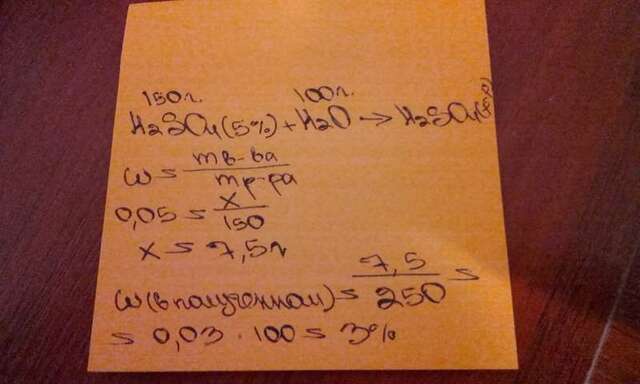 150г. 100г.
H2SO4(5%) + H2O → H2SO4(р-р)
ω = mв-ва / mр-ра
0,05 = x / 150
x = 7,5г
ω(в полученном) = 7,5 / 250 =
= 0,03 · 100 = 3%